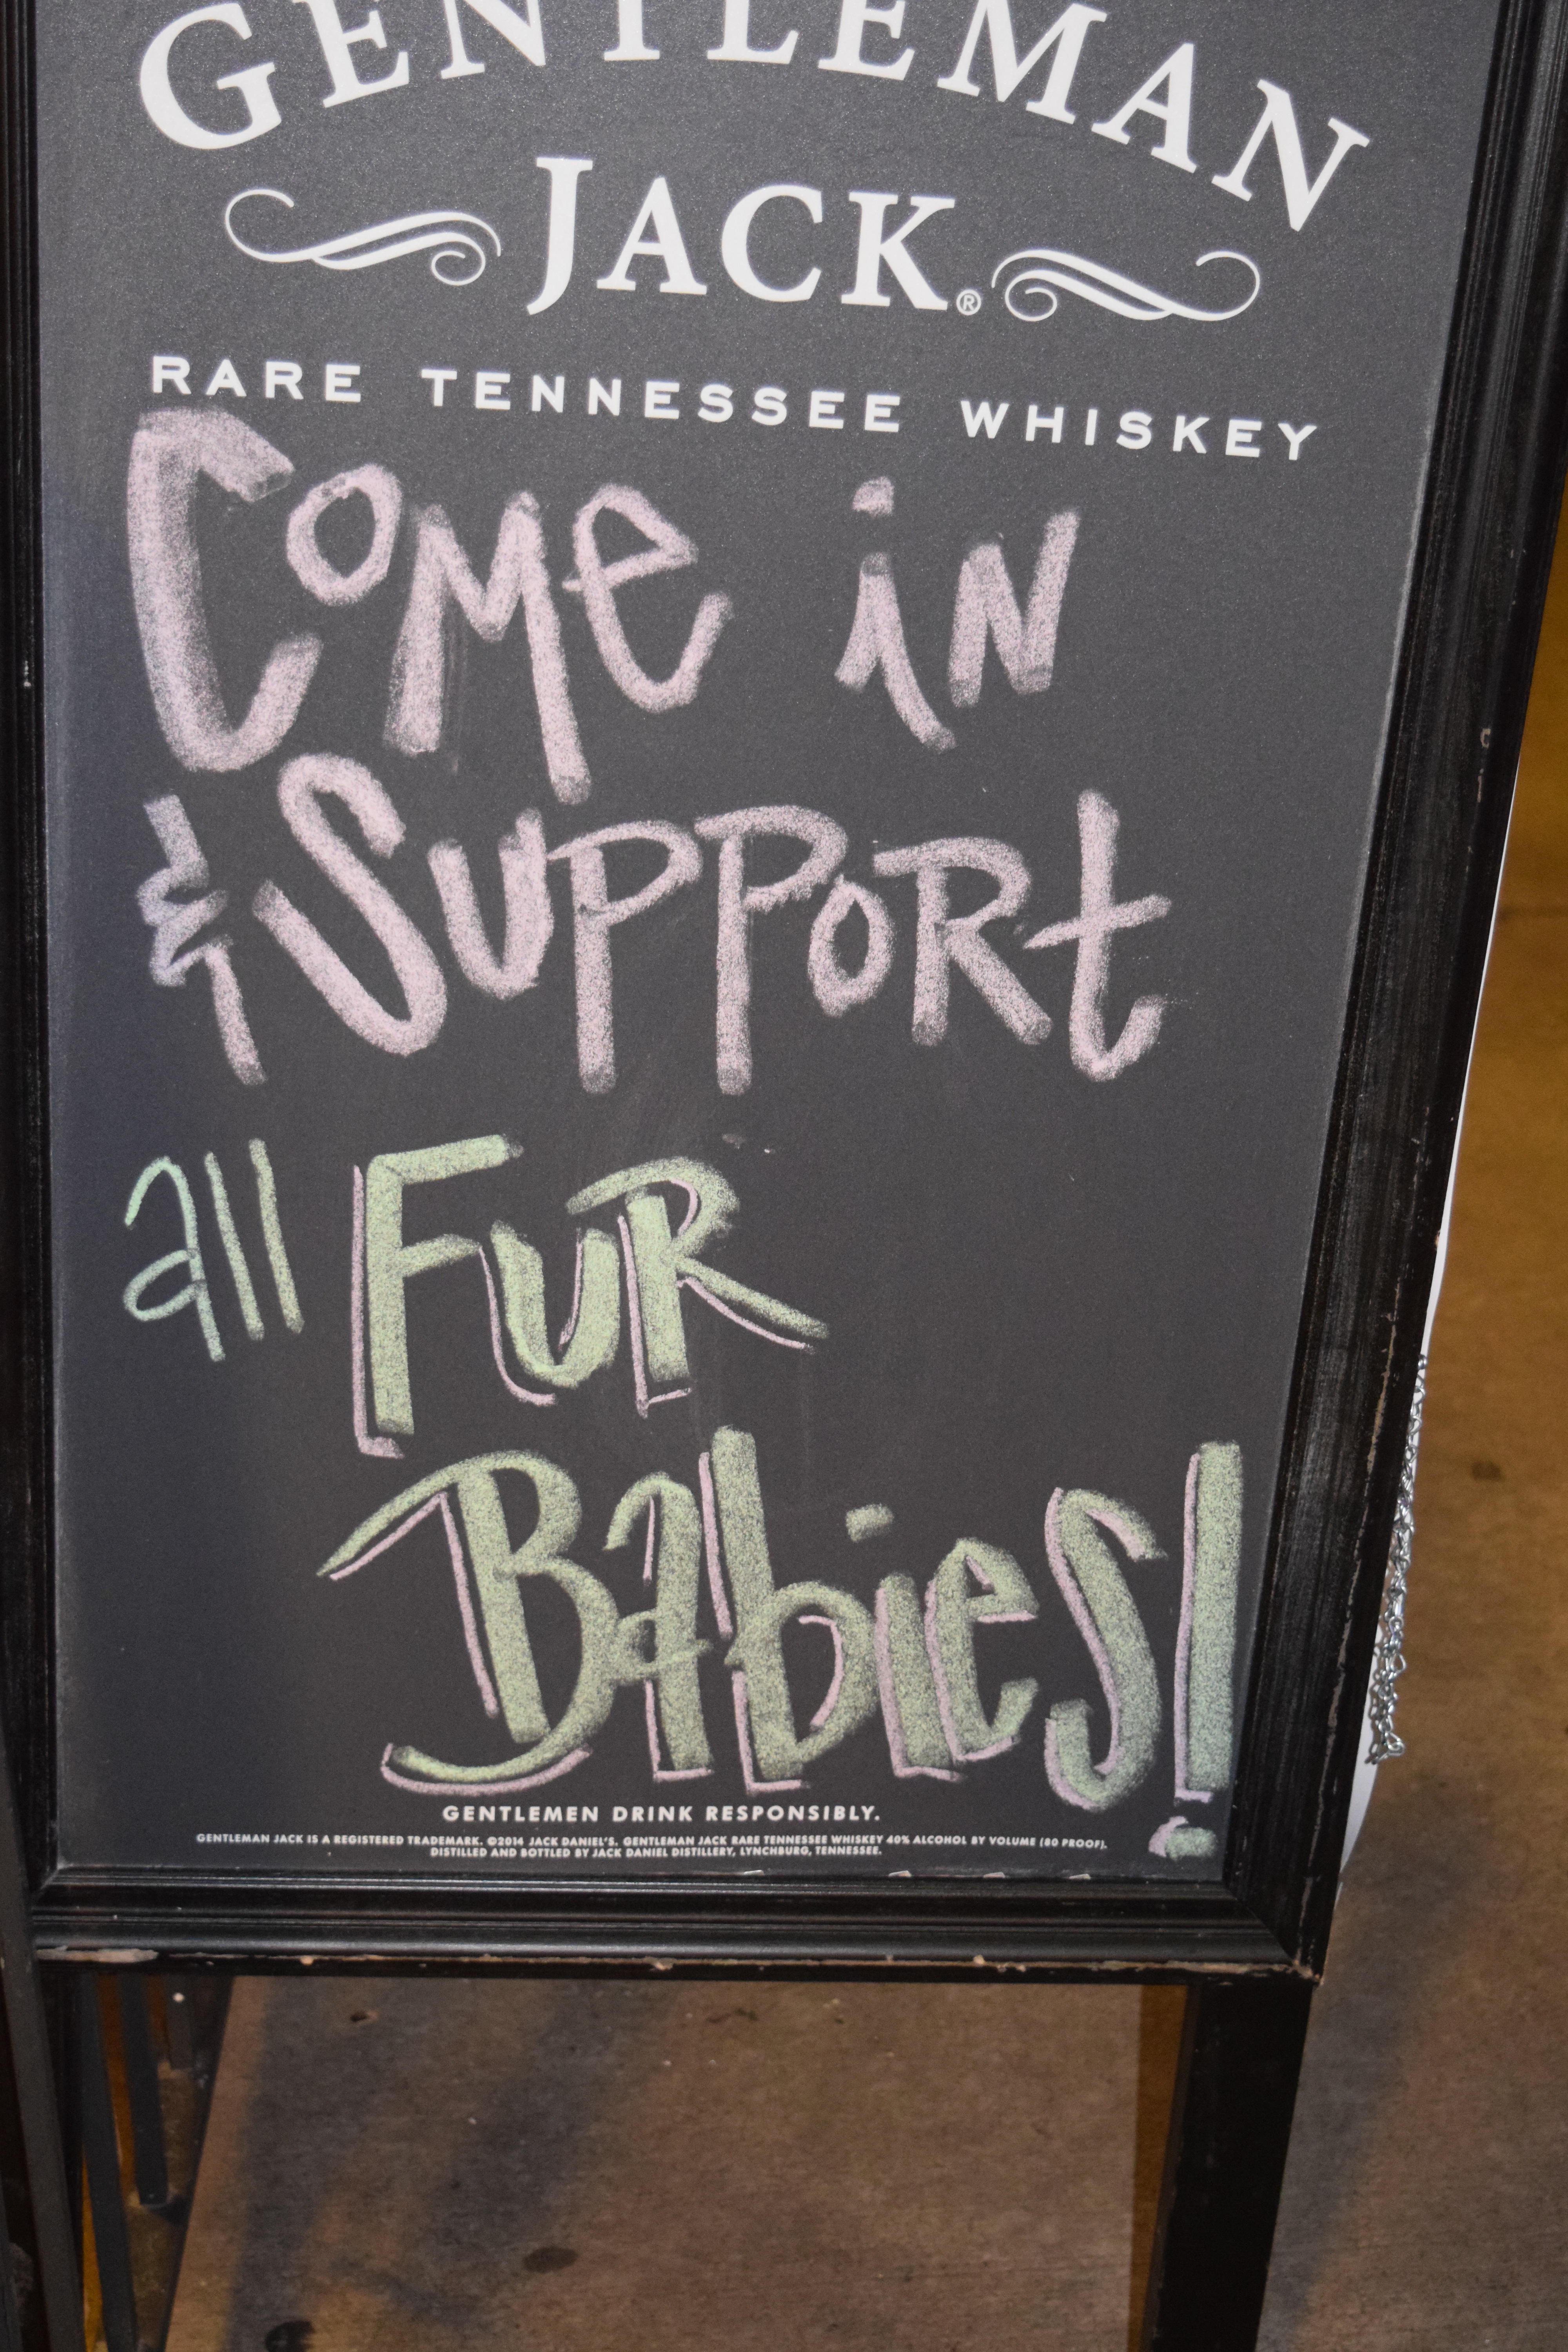 GENTLEMAN
JACK®
RARE TENNESSEE WHISKEY
Come in
& Support
all FUR
Babies!
GENTLEMEN DRINK RESPONSIBLY.
GENTLEMAN JACK IS A REGISTERED TRADEMARK. ©2014 JACK DANIEL'S. GENTLEMAN JACK RARE TENNESSEE WHISKEY 40% ALCOHOL BY VOLUME (80 PROOF).
DISTILLED AND BOTTLED BY JACK DANIEL DISTILLERY, LYNCHBURG, TENNESSEE.